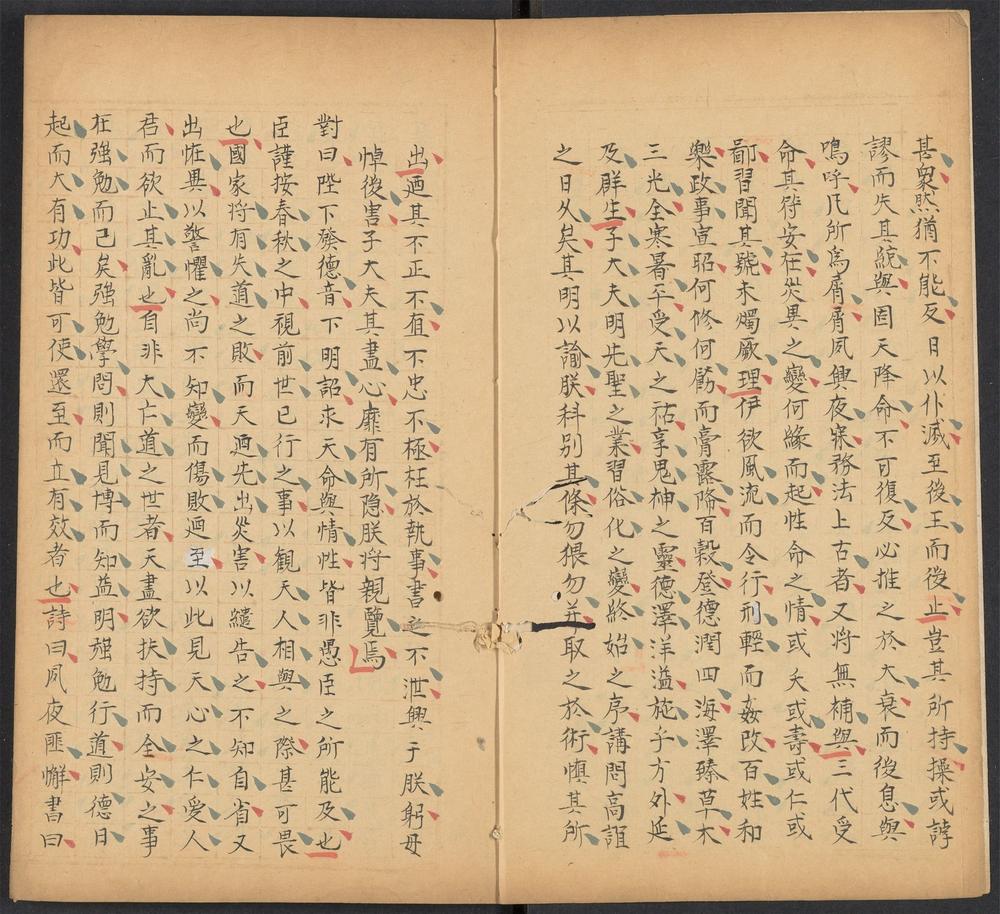 甚衆然猶不能反日以仆滅至後王而後止豈其所持操或誖
謬而失其統與固天降命不可復反必推之於大衰而後息與
嗚呼凡所爲屑屑夙興夜寐務法上古者又將無補與三代受
命其符安在災異之變何緣而起性命之情或夭或壽或仁或
鄙習聞其號未燭厥理伊欲風流而令行刑輕而姦改百姓和
樂政事宣昭何修何飭而膏露降百穀登德潤四海澤臻草木
三光全寒暑平受天之祜享鬼神之靈德澤洋溢施乎方外延
及群生子大夫明先聖之業習俗化之變終始之序講聞高誼
之日久矣其明以諭朕科別其條勿猥勿并取之於術慎其所
出迺其不正不直不忠不極枉於執事書之不泄興于朕躬毋
悼後害子大夫其盡心靡有所隐朕将親覽焉
對曰陛下發德音下明詔求天命與情性皆非愚臣之所能及也
臣謹按春秋之中視前世已行之事以觀天人相與之際甚可畏
也國家將有失道之敗而天迺先出災害以譴告之不知自省又
出恠異以警懼之尚不知變而傷敗迺至以此見天心之仁愛人
君而欲止其亂也自非大亡道之世者天盡欲扶持而全安之事
在強勉而已矣强勉學問則聞見博而知益明强勉行道則德日
起而大有功此皆可使還至而立有效者也詩曰夙夜匪懈書曰